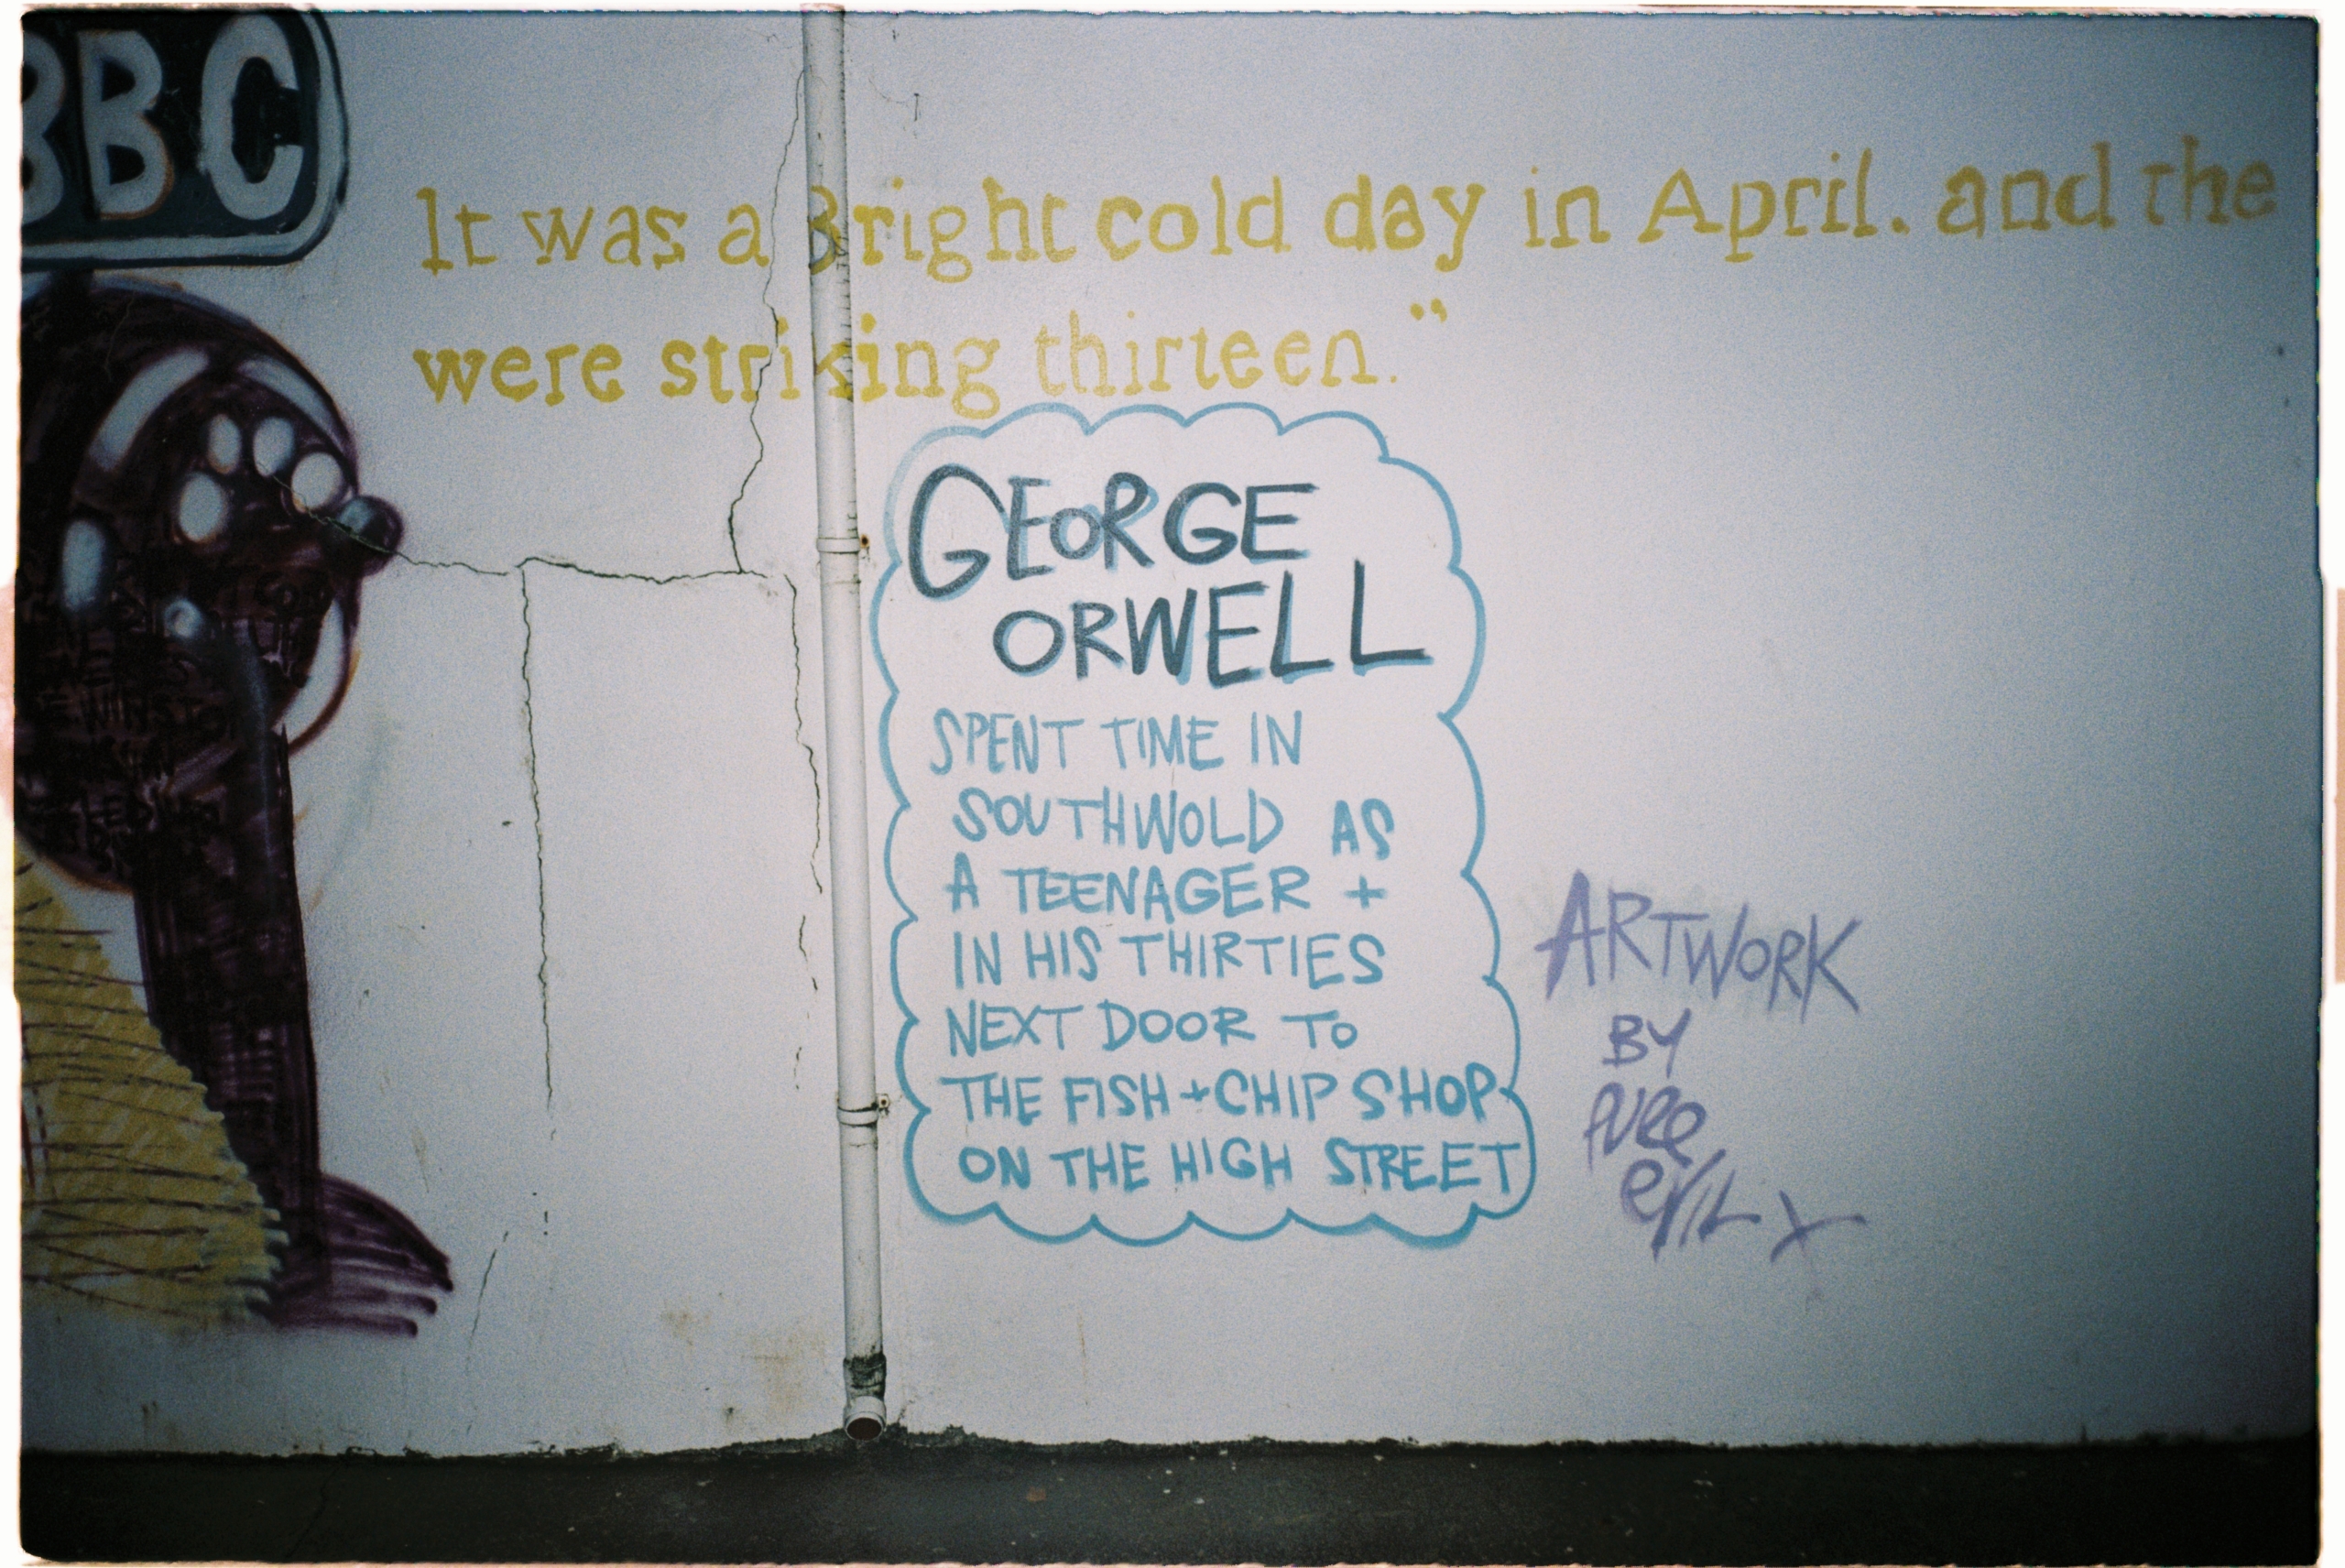 BBC
It was a Bright cold day in April. and the
were striking thirteen."
GEORGE
ORWELL
SPENT TIME IN
SOUTHWOLD AS
A TEENAGER +
IN HIS THIRTIES
NEXT DOOR TO
THE FISH + CHIP SHOP
ON THE HIGH STREET
ARTWORK
BY
PURE
EVIL X